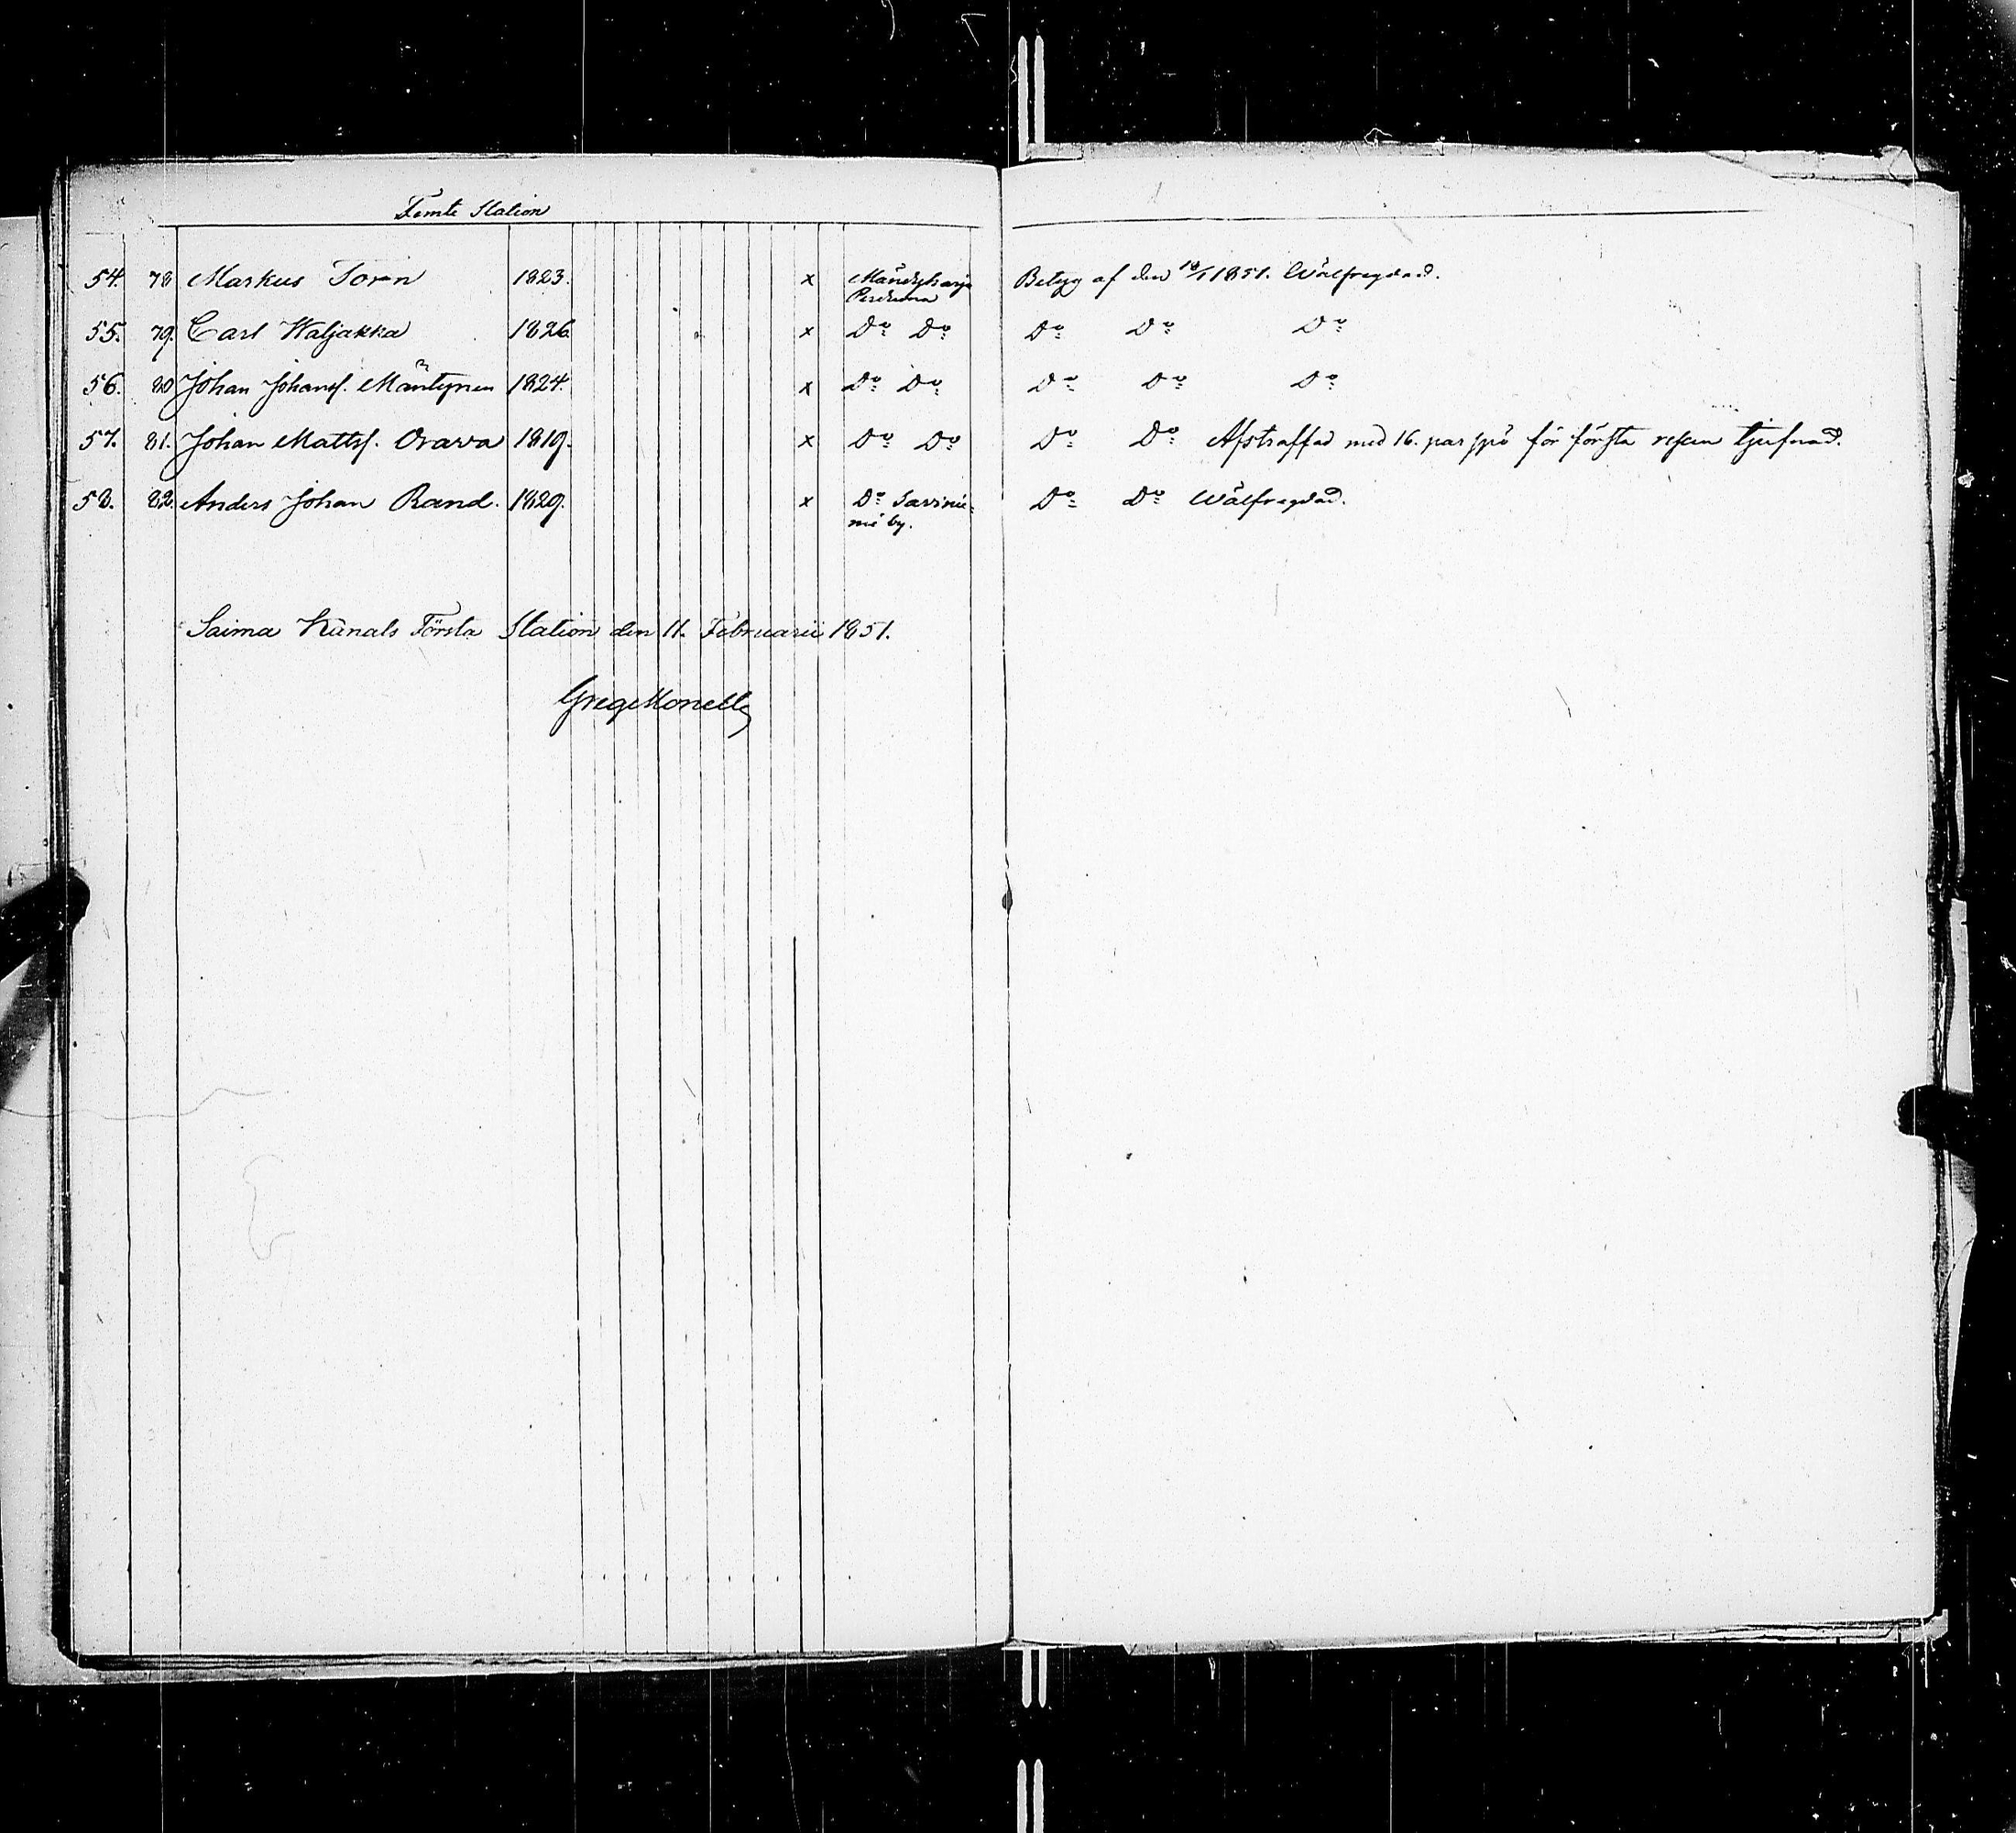 Femte Station
54. 78 Markus Toren 1823. x Mändyharju Betyg af den 18/1 1851. Wälfregdad.
55. 79. Carl Waljakka 1826 x Do Do Do Do Do
56. 80 Johan Johansf. Mäntynen 1824. x Do Do Do Do Do
57. 81. Johan Mattsf. Orava 1819. x Do Do Do Do Afstraffad med 16. par spö för första resan tjufnad.
58. 82. Anders Johan Rand. 1829. x Do Savinie=
mi by. Do Do Wälfregdad.
Saima Kanals Första Station den 11. Februarii 1851.